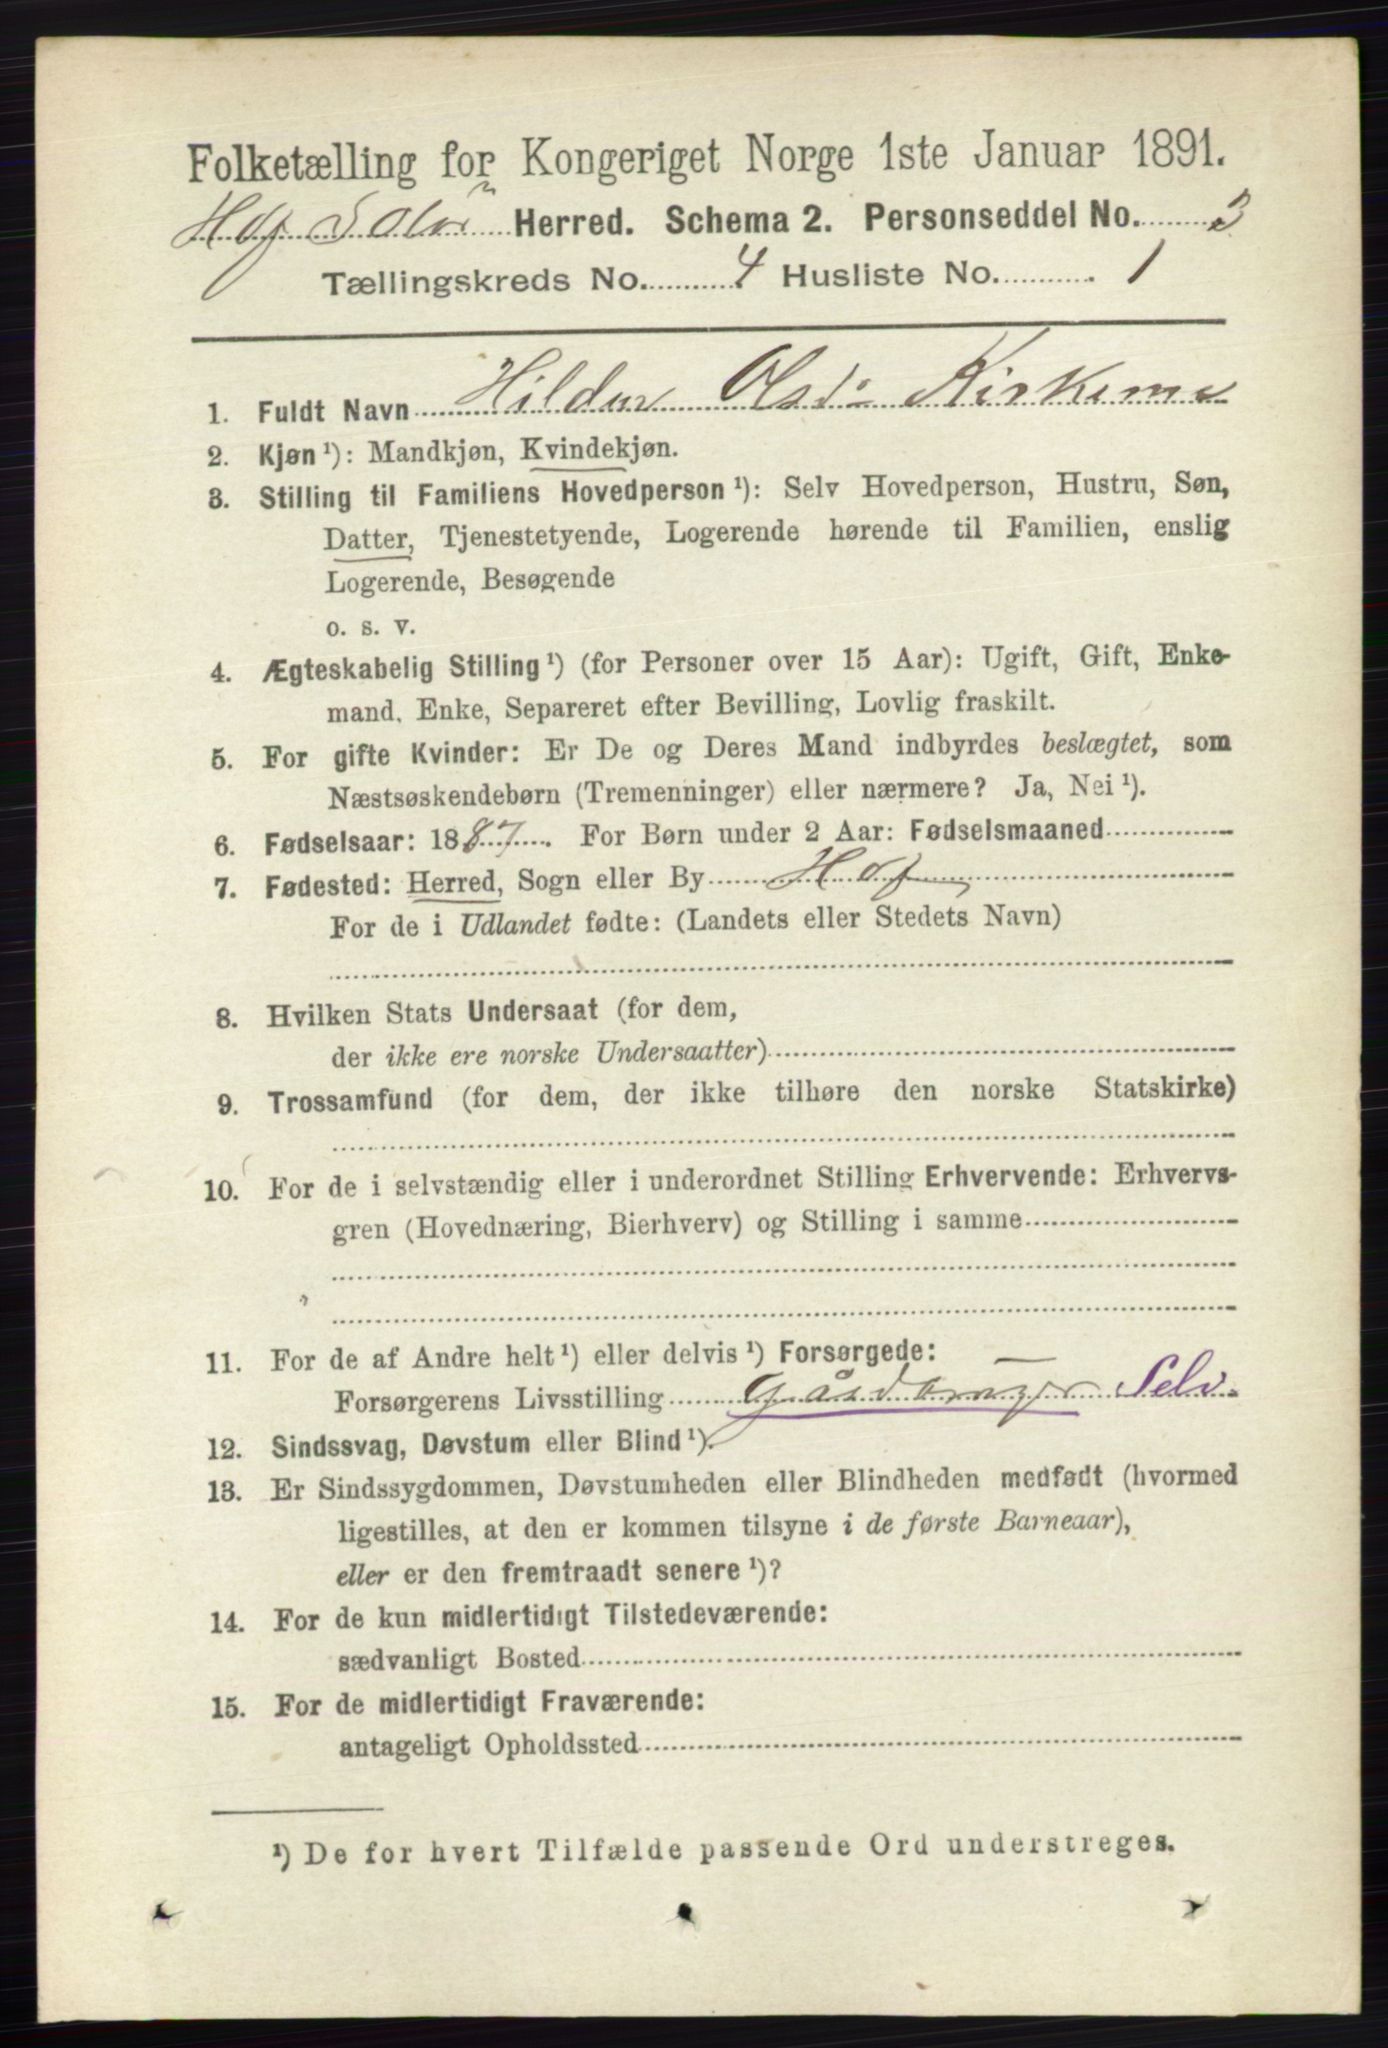 Folketælling for Kongeriget Norge 1ste Januar 1891.
Hof Solør Herred. Schema 2. Personseddel No. 3
Tællingskreds No. 4 Husliste No. 1
1. Fuldt Navn Hilder Olsd:
2. Kjøn ¹): Mandkjøn, Kvindekjøn.
3. Stilling til Familiens Hovedperson ¹): Selv Hovedperson, Hustru, Søn,
Datter, Tjenestetyende, Logerende hørende til Familien, enslig
Logerende, Besøgende
o. s. v.
4. Ægteskabelig Stilling ¹) (for Personer over 15 Aar): Ugift, Gift, Enke-
mand, Enke, Separeret efter Bevilling, Lovlig fraskilt.
5. For gifte Kvinder: Er De og Deres Mand indbyrdes beslægtet, som
Næstsøskendebørn (Tremenninger) eller nærmere? Ja, Nei ¹).
6. Fødselsaar: 1887. For Børn under 2 Aar: Fødselsmaaned
7. Fødested: Herred, Sogn eller By Hof
For de i Udlandet fødte: (Landets eller Stedets Navn)
8. Hvilken Stats Undersaat (for dem,
der ikke ere norske Undersaatter)
9. Trossamfund (for dem, der ikke tilhøre den norske Statskirke)
10. For de i selvstændig eller i underordnet Stilling Erhvervende: Erhvervs-
gren (Hovednæring, Bierhverv) og Stilling i samme
11. For de af Andre helt ¹) eller delvis ¹) Forsørgede:
Forsørgerens Livsstilling Selv.
12. Sindssvag, Døvstum eller Blind ¹).
13. Er Sindssygdommen, Døvstumheden eller Blindheden medfødt (hvormed
ligestilles, at den er kommen tilsyne i de første Barneaar),
eller er den fremtraadt senere ¹)?
14. For de kun midlertidigt Tilstedeværende:
sædvanligt Bosted
15. For de midlertidigt Fraværende:
antageligt Opholdssted
¹) De for hvert Tilfælde passende Ord understreges.